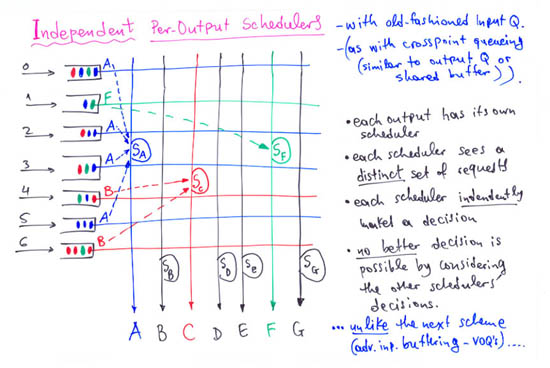 Independent Per-Output Schedulers
- with old-fashioned Input Q.
- (as with crosspoint queueing
(similar to output Q or
shared buffer)).
0 A
1 F
2 A
3 A
4 B
5 A
6 B
S_A
S_F
S_C
S_B S_D S_E S_G
A B C D E F G
• each output has its own
scheduler
• each scheduler sees a
distinct set of requests
• each scheduler indendently
makes a decision
• no better decision is
possible by considering
the other schedulers'
decisions.
... unlike the next scheme
(adv. inp. buffering - VOQ's) ....